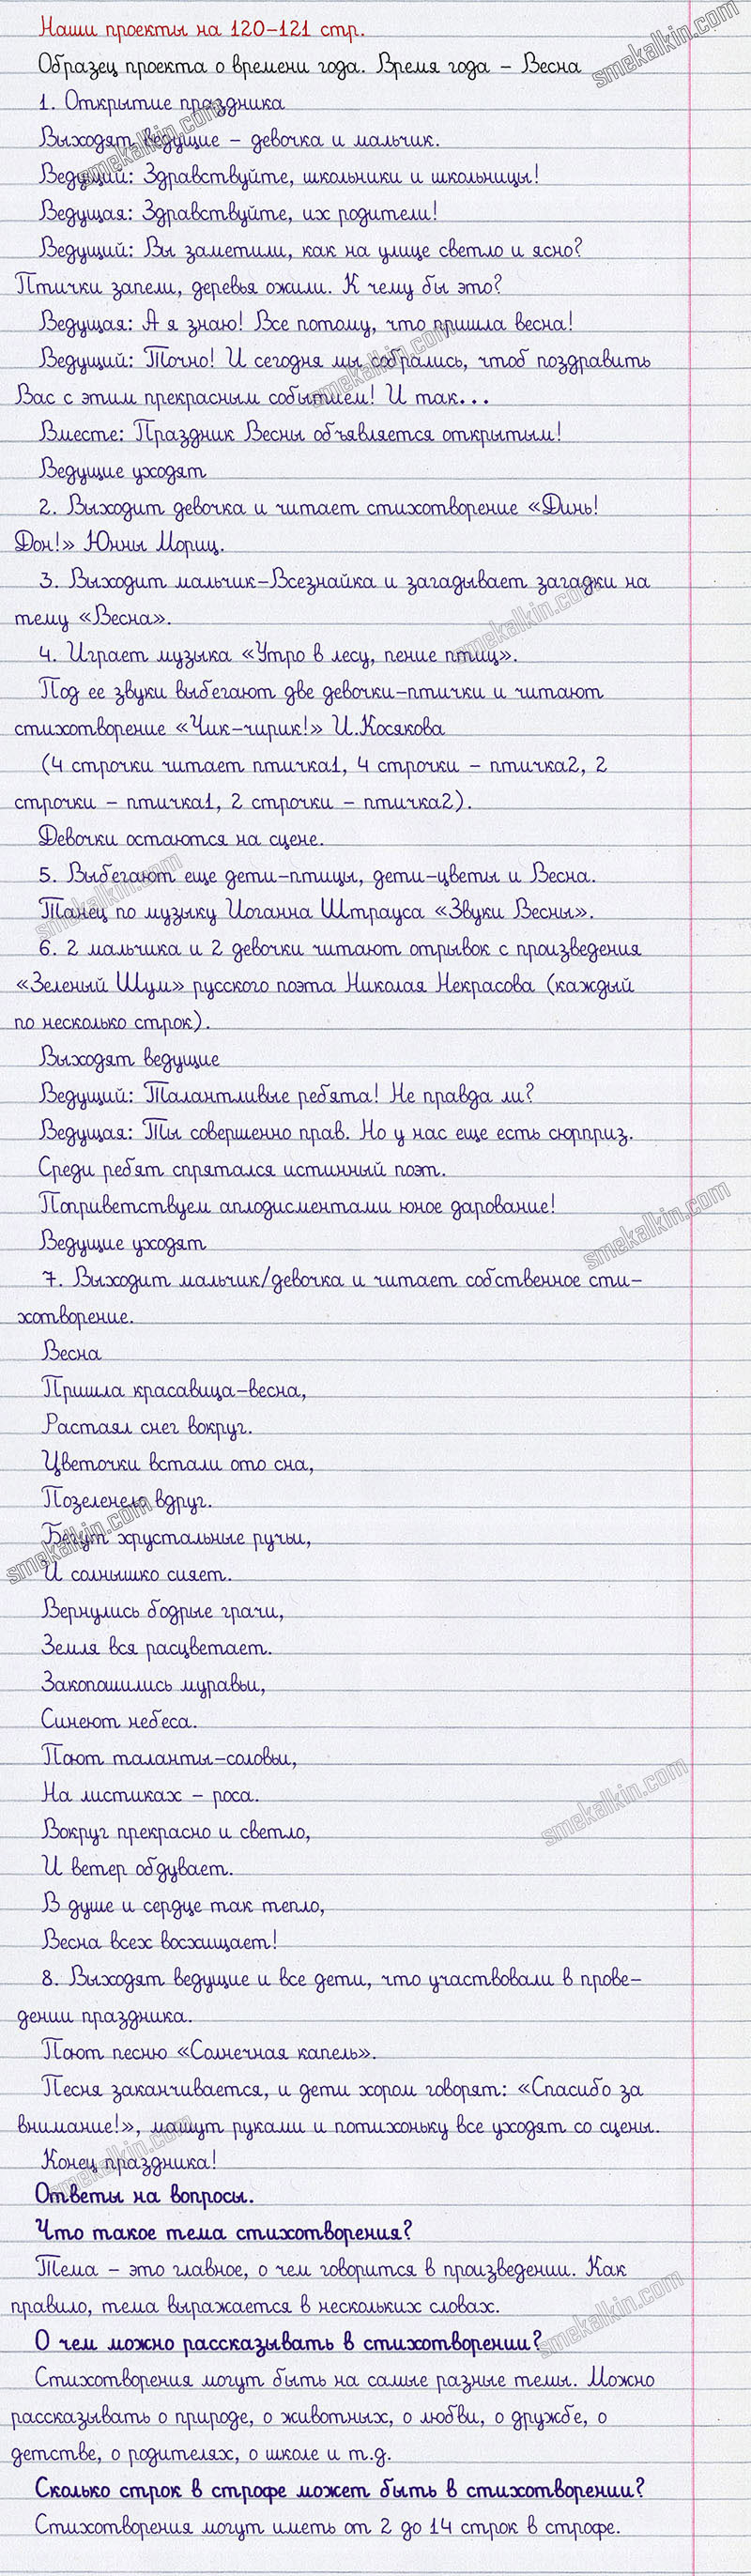 Наши проекты на 120-121 стр.
Образец проекта о времени года. Время года - Весна
1. Открытие праздника
Выходят ведущие - девочка и мальчик.
Ведущий: Здравствуйте, школьники и школьницы!
Ведущая: Здравствуйте, их родители!
Ведущий: Вы заметили, как на улице светло и ясно?
Птички запели, деревья ожили. К чему бы это?
Ведущая: А я знаю! Все потому, что пришла весна!
Ведущий: Точно! И сегодня мы собрались, чтоб поздравить
Вас с этим прекрасным событием! И так...
Вместе: Праздник Весны объявляется открытым!
Ведущие уходят
2. Выходит девочка и читает стихотворение «Динь!
Дон!» Юнны Мориц.
3. Выходит мальчик-Всезнайка и загадывает загадки на
тему «Весна».
4. Играет музыка «Утро в лесу, пение птиц».
Под ее звуки выбегают две девочки-птички и читают
стихотворение «Чик-чирик!» И.Косякова
(4 строчки читает птичка1, 4 строчки - птичка2, 2
строчки - птичка1, 2 строчки - птичка2).
Девочки остаются на сцене.
5. Выбегают еще дети-птицы, дети-цветы и Весна.
Танец по музыку Иоганна Штрауса «Звуки Весны».
6. 2 мальчика и 2 девочки читают отрывок с произведения
«Зеленый Шум» русского поэта Николая Некрасова (каждый
по несколько строк).
Выходят ведущие
Ведущий: Талантливые ребята! Не правда ли?
Ведущая: Ты совершенно прав. Но у нас еще есть сюрприз.
Среди ребят спрятался истинный поэт.
Поприветствуем аплодисментами юное дарование!
Ведущие уходят
7. Выходит мальчик/девочка и читает собственное сти-
хотворение.
Весна
Пришла красавица-весна,
Растаял снег вокруг.
Цветочки встали ото сна,
Позеленело вдруг.
Бегут хрустальные ручьи,
И солнышко сияет.
Вернулись бодрые грачи,
Земля вся расцветает.
Закопошились муравьи,
Синеют небеса.
Поют таланты-соловьи,
На листиках - роса.
Вокруг прекрасно и светло,
И ветер обдувает.
В душе и сердце так тепло,
Весна всех восхищает!
8. Выходят ведущие и все дети, что участвовали в прове-
дении праздника.
Поют песню «Солнечная капель».
Песня заканчивается, и дети хором говорят: «Спасибо за
внимание!», машут руками и потихоньку все уходят со сцены.
Конец праздника!
Ответы на вопросы.
Что такое тема стихотворения?
Тема - это главное, о чем говорится в произведении. Как
правило, тема выражается в нескольких словах.
О чем можно рассказывать в стихотворении?
Стихотворения могут быть на самые разные темы. Можно
рассказывать о природе, о животных, о любви, о дружбе, о
детстве, о родителях, о школе и т.д.
Сколько строк в строфе может быть в стихотворении?
Стихотворения могут иметь от 2 до 14 строк в строфе.
smekalkin.com
smekalkin.com
smekalkin.com
smekalkin.com
smekalkin.com
smekalkin.com
smekalkin.com
smekalkin.com
smekalkin.com
smekalkin.com